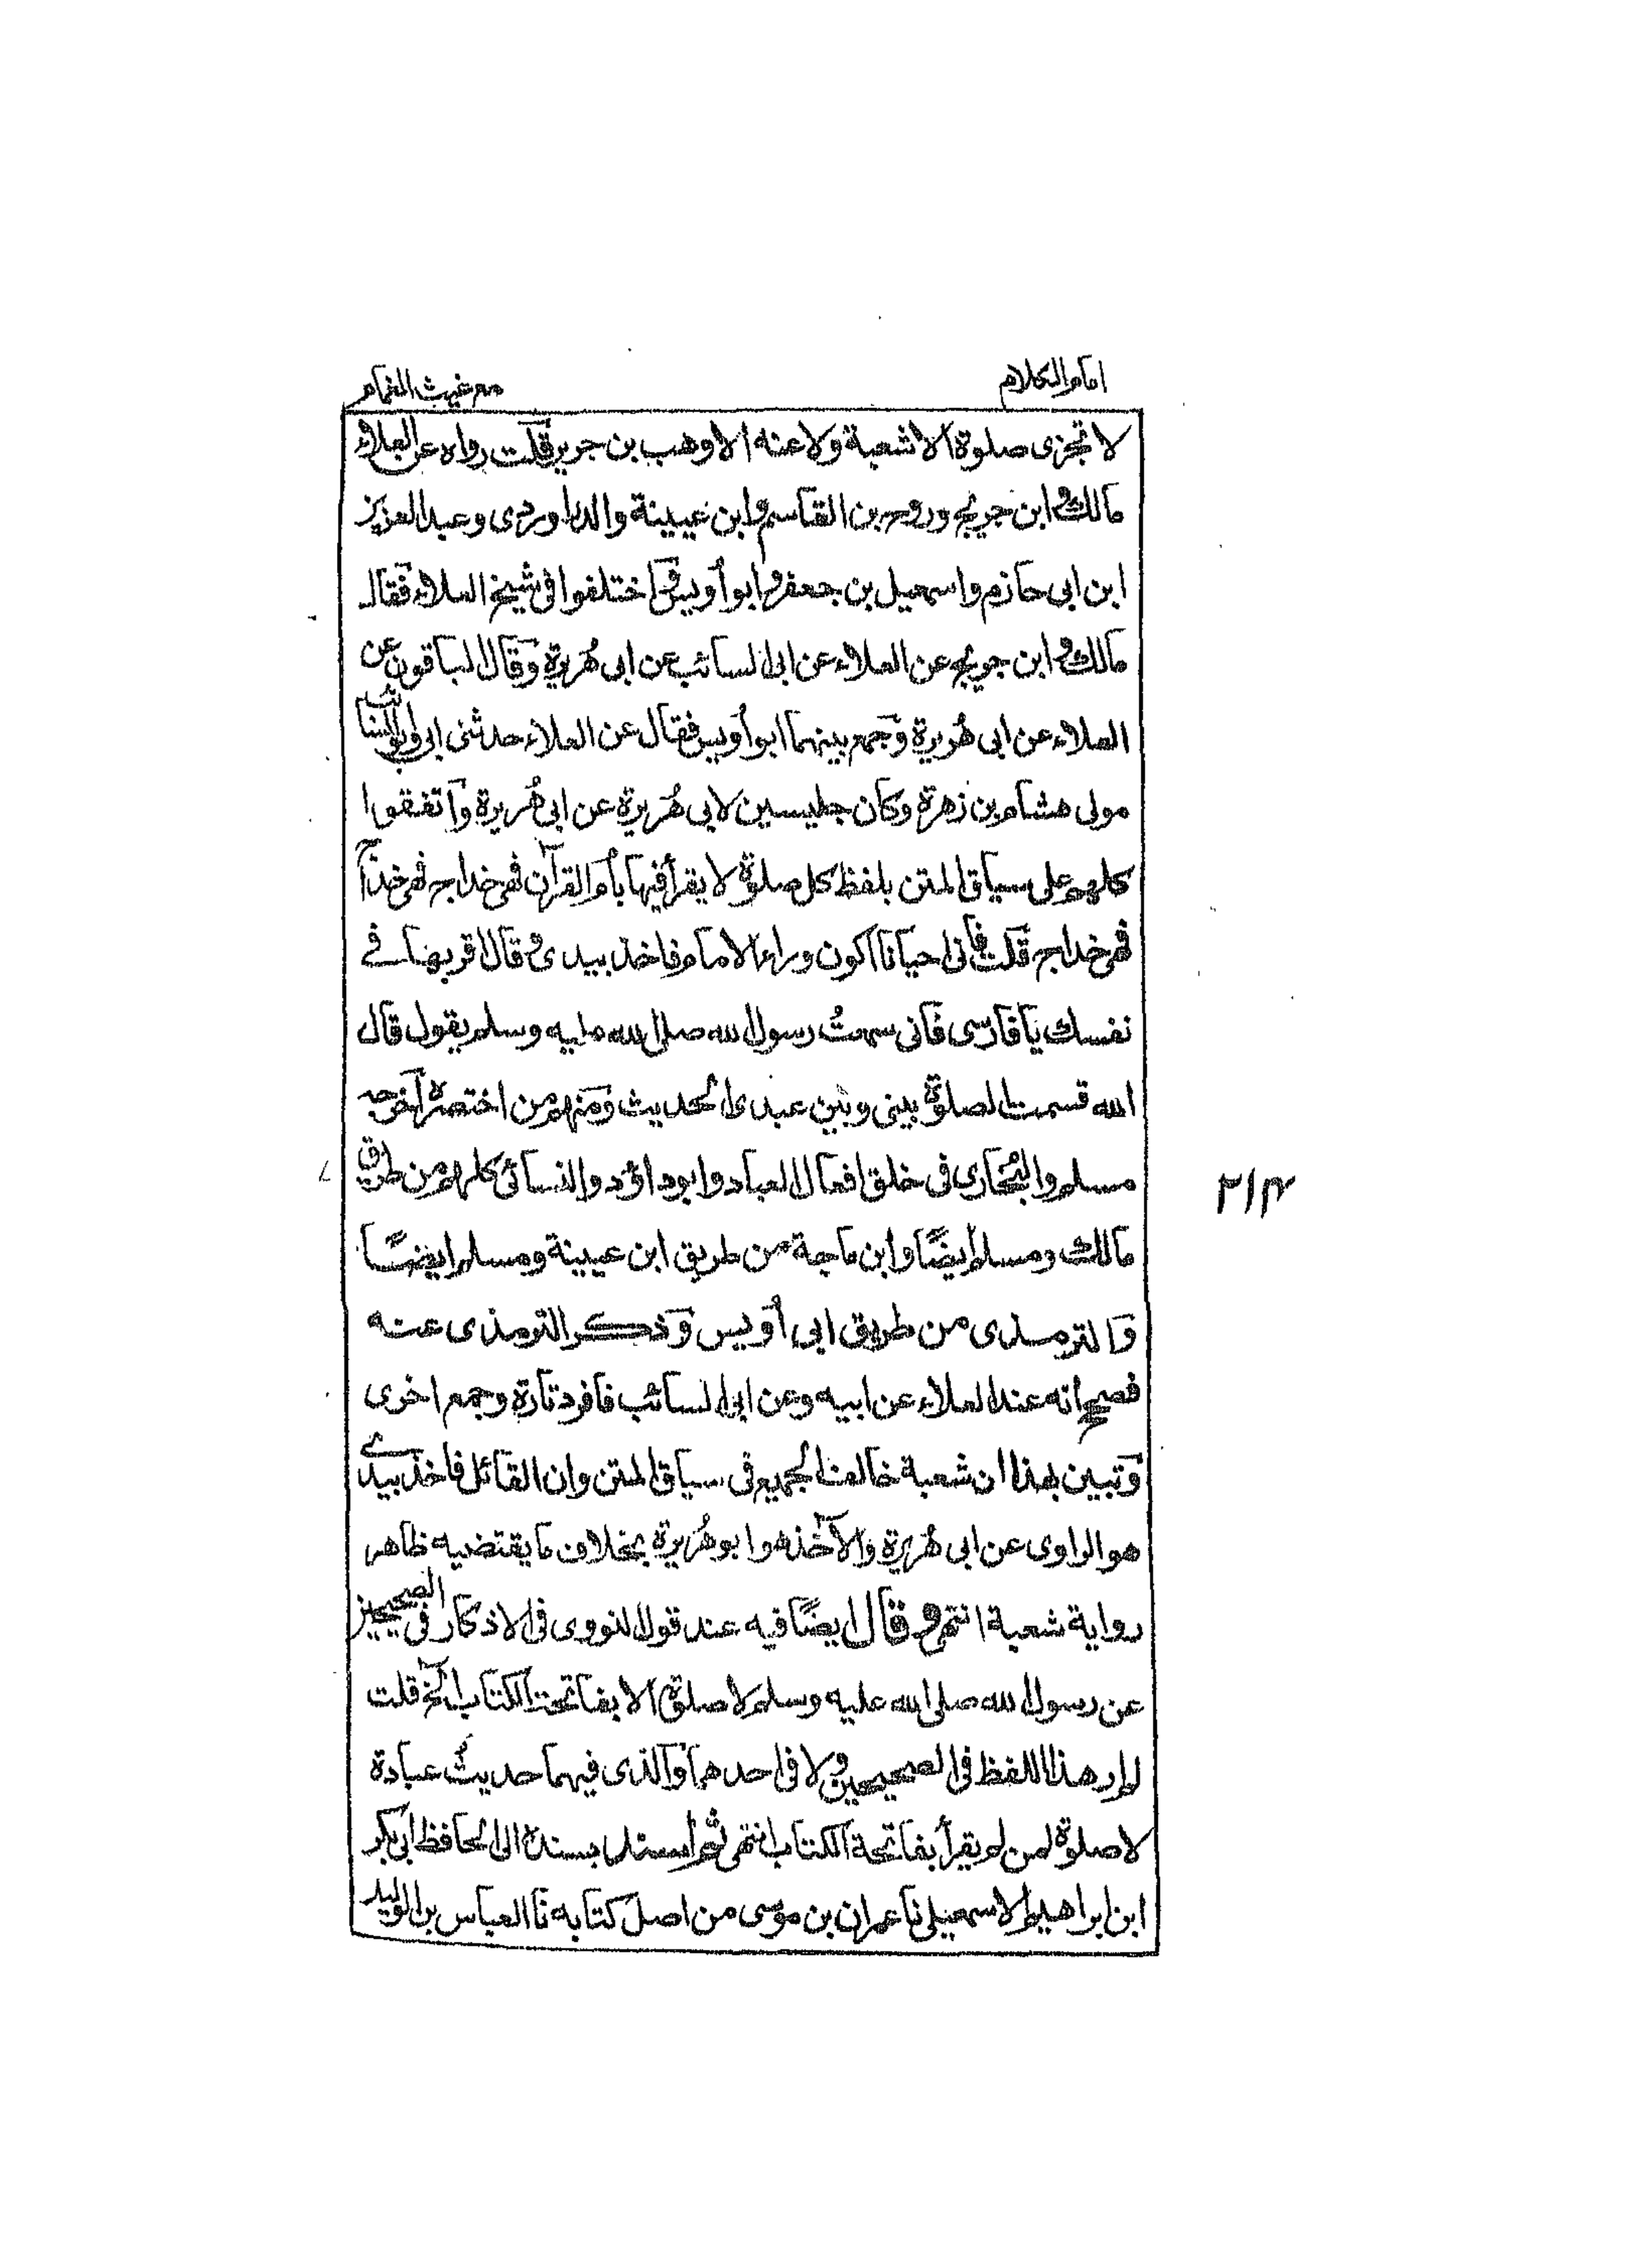 امام الكلام
مع غيث الغمام
لا تجزى صلوة الا شعبة ولا عنه الا وهب بن جرير قلت رواه عن العلاء
مالك وابن جريج وروح بن القاسم وابن عيينة والدراوردى وعبد العزيز
ابن ابى حازم واسمعيل بن جعفر وابو أويس واختلفوا فى شيخ العلاء فقال
مالك وابن جريج عن العلاء عن ابى السائب عن ابى هُريرة وقال الباقون عن
العلاء عن ابى هُريرة وجمع بينهما ابو أويس فقال عن العلاء حدثنى ابى وابو السائب
مولى هشام بن زهرة وكان جليسين لابى هُريرة عن ابى هُريرة واتفقوا
كلهم على سياق المتن بلفظ كل صلوة لا يقرأ فيها بأم القرآن فهى خداج فهى خداج
فهى خداج قلت فانى احيانا اكون وراء الامام فاخذ بيدى وقال اقر بها فے
نفسك يا فارسى فانى سمعتُ رسول الله صلى الله عليه وسلم يقول قال
الله قسمت الصلوة بينى وبين عبدى الحديث ومنهم من اختصره اخرجه
مسلم والبُخارى فى خلق افعال العباد وابو داؤد والنسائى كلهم من طريق
مالك ومسلم ايضًا وابن ماجة من طريق ابن عيينة ومسلم ايضًا
والترمذى من طريق ابى أويس وذكر الترمذى عنه
فصح أنه عند العلاء عن ابيه وعن ابى السائب فافرد تارة وجمع اخرى
وتبين بهذا ان شعبة خالف الجميع فى سياق المتن وان القائل فاخذ بيدے
هو الراوى عن ابى هُريرة والآخذ هو ابو هُريرة بخلاف ما يقتضيه ظاهر
رواية شعبة انتهى وقال ايضًا فيه عند قول النووى فى الاذكار فى الصحيحين
عن رسول الله صلى الله عليه وسلم لا صلوة الا بفاتحة الكتاب الخ قلت
لم ار هذا اللفظ فى الصحيحين ولا فى احدهما والذى فيهما حديثُ عبادة
لا صلوة لمن لم يقرأ بفاتحة الكتاب انتهى ثم أسند بسنده الى الحافظ ابى بكر
ابن ابراهيم الاسمعيلى نا عمران بن موسى من اصل كتابه نا العباس بن الوليد
٢١٤